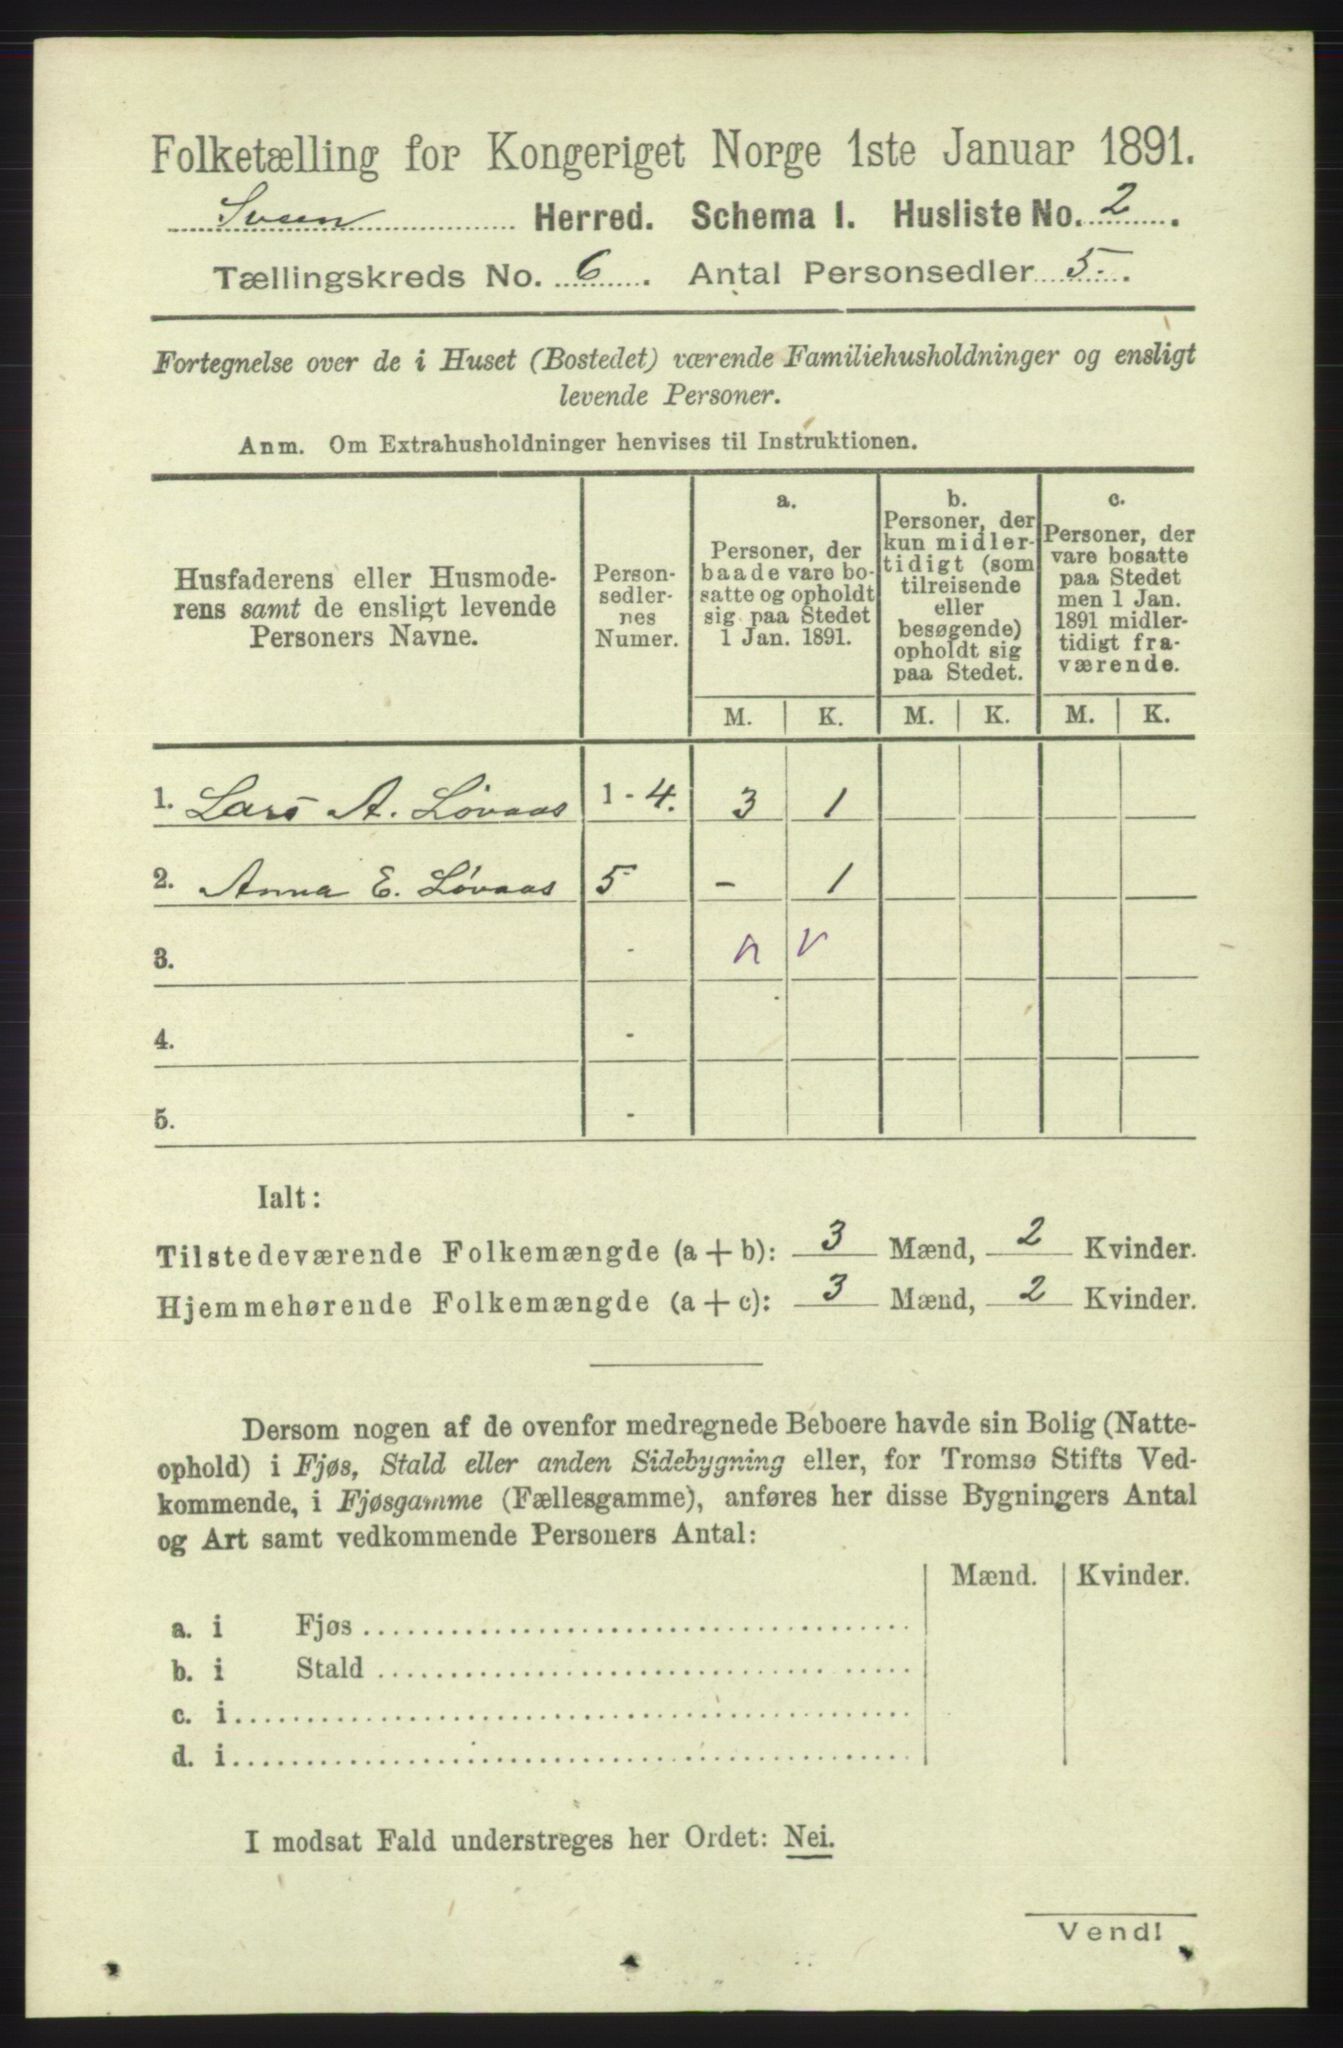 Folketælling for Kongeriget Norge 1ste Januar 1891.
Herred. Schema 1. Husliste No. 2.
Tællingskreds No. 6. Antal Personsedler 5.
Fortegnelse over de i Huset (Bostedet) værende Familiehusholdninger og ensligt
levende Personer.
Anm. Om Extrahusholdninger henvises til Instruktionen.
Husfaderens eller Husmode-
rens samt de ensligt levende
Personers Navne.
Person-
sedler-
nes
Numer.
a.
Personer, der
baade vare bo-
satte og opholdt
sig paa Stedet
1 Jan. 1891.
b.
Personer, der
kun midler-
tidigt (som
tilreisende
eller
besøgende)
opholdt sig
paa Stedet.
c.
Personer, der
vare bosatte
paa Stedet
men 1 Jan.
1891 midler-
tidigt fra-
værende.
M. K. M. K. M. K.
1. Lars A. Løvaas 1 - 4. 3 1
2. Anna E. Løvaas 5 - 1
3. -
4. -
5. -
Ialt:
Tilstedeværende Folkemængde (a + b): 3 Mænd, 2 Kvinder.
Hjemmehørende Folkemængde (a + c): 3 Mænd, 2 Kvinder.
Dersom nogen af de ovenfor medregnede Beboere havde sin Bolig (Natte-
ophold) i Fjøs, Stald eller anden Sidebygning eller, for Tromsø Stifts Ved-
kommende, i Fjøsgamme (Fællesgamme), anføres her disse Bygningers Antal
og Art samt vedkommende Personers Antal:
Mænd. Kvinder.
a. i Fjøs
b. i Stald
c. i
d. i
I modsat Fald understreges her Ordet: Nei.
Vend!